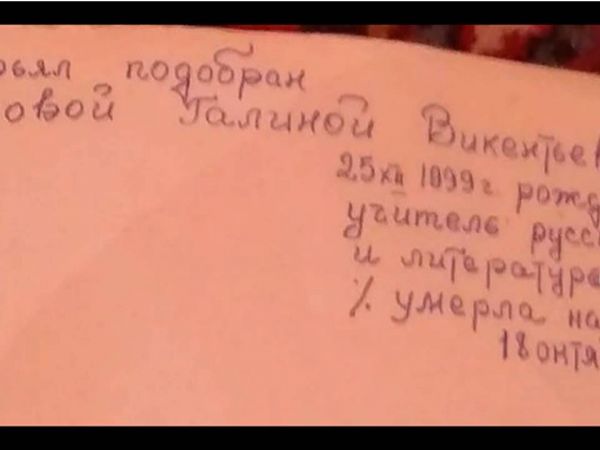 подобран
овой Галиной Викентьев
25 XII 1899 г. рожд
учитель русс
и литературе
умерла на
18 октя